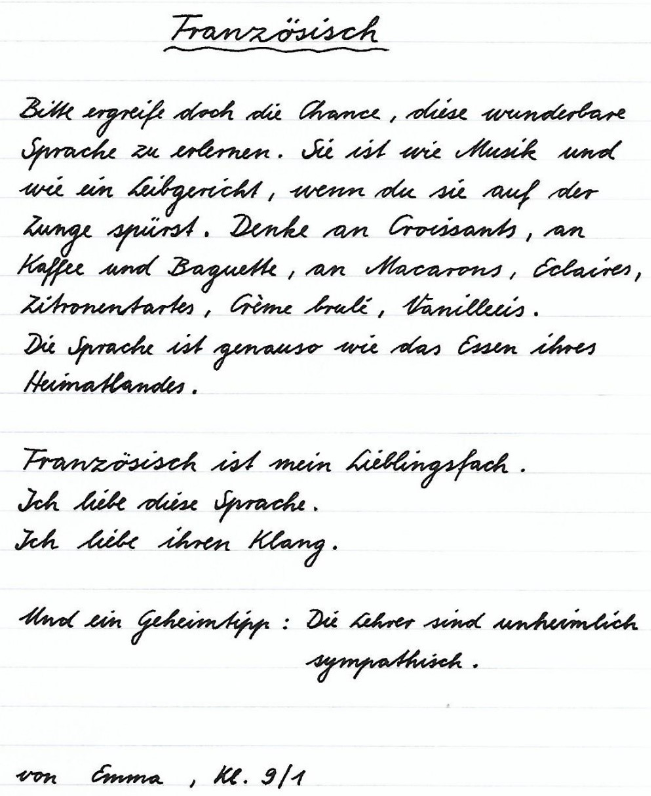 Französisch
Bitte ergreife doch die Chance, diese wunderbare
Sprache zu erlernen. Sie ist wie Musik und
wie ein Leibgericht, wenn du sie auf der
Zunge spürst. Denke an Croissants, an
Kaffee und Baguette, an Macarons, Eclaires,
Zitronentartes, Crème brulé, Vanilleeis.
Die Sprache ist genauso wie das Essen ihres
Heimatlandes.
Französisch ist mein Lieblingsfach.
Ich liebe diese Sprache.
Ich liebe ihren Klang.
Und ein Geheimtipp: Die Lehrer sind unheimlich
sympathisch.
von Emma, Kl. 9/1